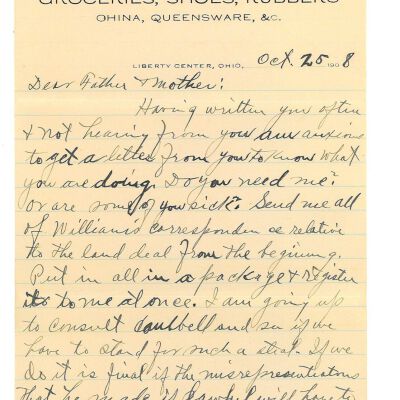 GROCERIES, SHOES, RUBBERS
OHINA, QUEENSWARE, &C.
LIBERTY CENTER, OHIO, Oct. 25 1908
Dear Father & Mother:
Having written you often
& not hearing from you am anxious
to get a letter from you to know what
you are doing. Do you need me?
Or are some of you sick? Send me all
of William's correspondence relative
to the land deal from the beginning.
Put in all in a package & register
it to me at once. I am going up
to consult Caulbell and see if we
have to stand for such a steal. If we
do it is final if the misrepresentations
that he made if will have to